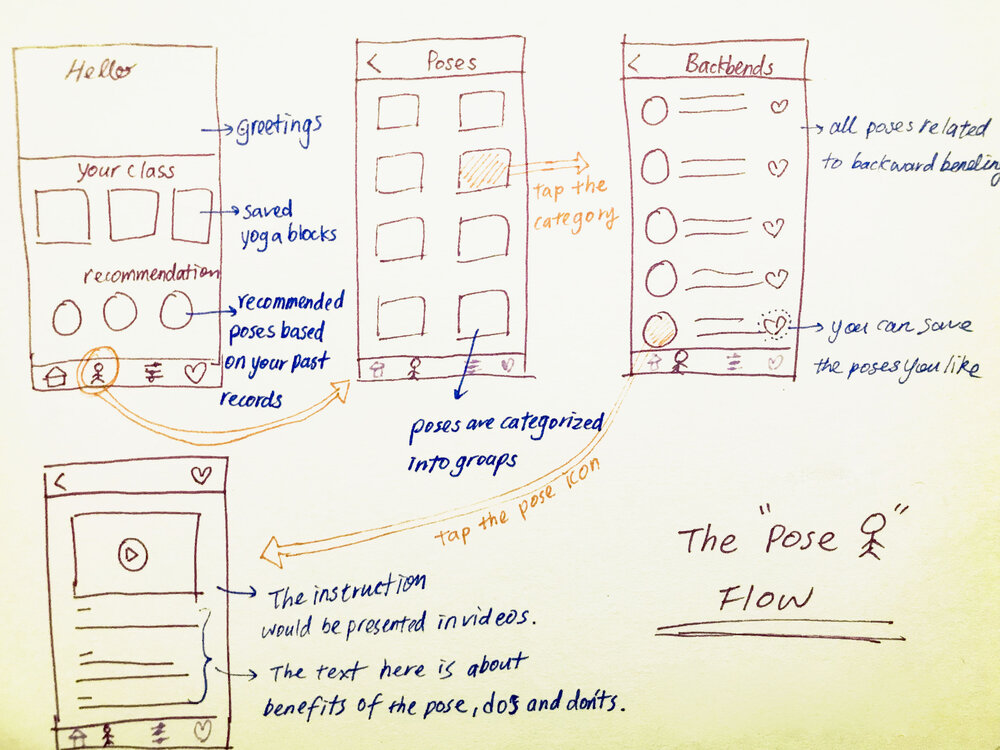 Hello
Greetings
your class
saved
yoga blocks
recommendation
recommended
poses based
on your past
records
< Poses
tap the
category
poses are categorized
into groaps
< Backbends
all poses related
to backward bending
you can save
the poses you like
tap the pose icon
<
The instruction
would be presented in videos.
The text here is about
benefits of the pose, do's and don'ts.
The "Pose "
Flow